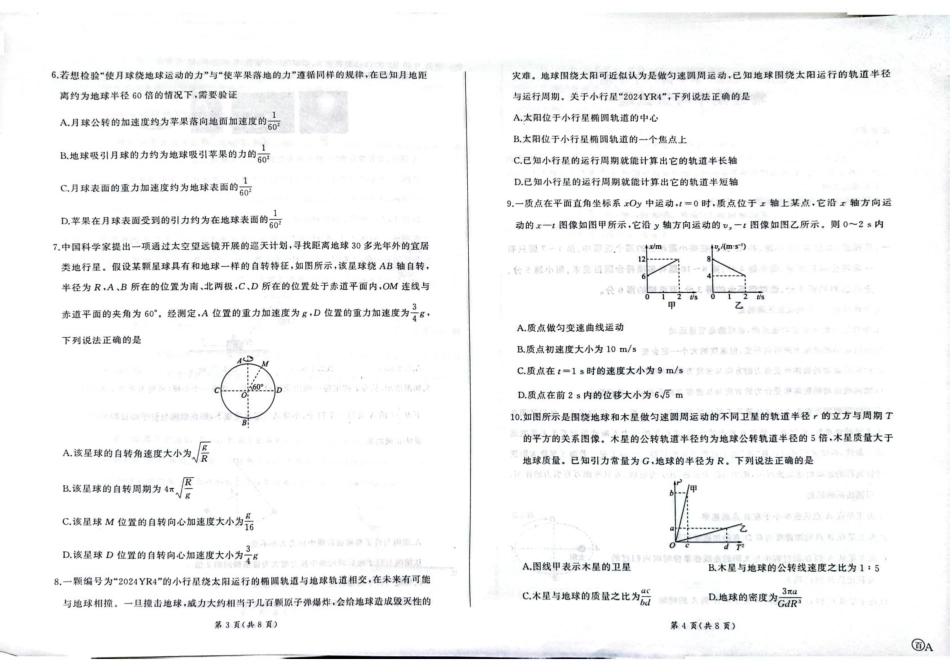 6.若想检验“使月球绕地球运动的力”与“使苹果落地的力”遵循同样的规律,在已知月地距
离约为地球半径 60 倍的情况下,需要验证
A.月球公转的加速度约为苹果落向地面加速度的1/60²
B.地球吸引月球的力约为地球吸引苹果的力的1/60²
C.月球表面的重力加速度约为地球表面的1/60²
D.苹果在月球表面受到的引力约为在地球表面的1/60²
7.中国科学家提出一项通过太空望远镜开展的巡天计划,寻找距离地球 30 多光年外的宜居
类地行星。假设某颗星球具有和地球一样的自转特征,如图所示,该星球绕 AB 轴自转,
半径为 R,A、B 所在的位置为南、北两极,C、D 所在的位置处于赤道平面内,OM 连线与
赤道平面的夹角为 60°。经测定,A 位置的重力加速度为 g,D 位置的重力加速度为3/4g,
下列说法正确的是
A
M
C
O
60°
D
B
A.该星球的自转角速度大小为√(g/R)
B.该星球的自转周期为 4π√(R/g)
C.该星球 M 位置的自转向心加速度大小为g/16
D.该星球 D 位置的自转向心加速度大小为3/4g
8.一颗编号为“2024YR4”的小行星绕太阳运行的椭圆轨道与地球轨道相交,在未来有可能
与地球相撞。一旦撞击地球,威力大约相当于几百颗原子弹爆炸,会给地球造成毁灭性的
第 3 页(共 8 页)
灾难。地球围绕太阳可近似认为是做匀速圆周运动,已知地球围绕太阳运行的轨道半径
与运行周期。关于小行星“2024YR4”,下列说法正确的是
A.太阳位于小行星椭圆轨道的中心
B.太阳位于小行星椭圆轨道的一个焦点上
C.已知小行星的运行周期就能计算出它的轨道半长轴
D.已知小行星的运行周期就能计算出它的轨道半短轴
9.一质点在平面直角坐标系 xOy 中运动,t=0 时,质点位于 x 轴上某点,它沿 x 轴方向运
动的 x—t 图像如图甲所示,它沿 y 轴方向运动的 vy-t 图像如图乙所示。则 0~2 s 内
x/m
12
6
0 1 2 t/s
甲
vy/(m·s⁻¹)
8
4
0 1 2 t/s
乙
A.质点做匀变速曲线运动
B.质点初速度大小为 10 m/s
C.质点在 t=1 s 时的速度大小为 9 m/s
D.质点在前 2 s 内的位移大小为 6√5 m
10.如图所示是围绕地球和木星做匀速圆周运动的不同卫星的轨道半径 r 的立方与周期 T
的平方的关系图像。木星的公转轨道半径约为地球公转轨道半径的 5 倍,木星质量大于
地球质量。已知引力常量为 G,地球的半径为 R。下列说法正确的是
r³
甲
b
乙
a
O c d T²
A.图线甲表示木星的卫星
B.木星与地球的公转线速度之比为 1:5
C.木星与地球的质量之比为ac/bd
D.地球的密度为3πa/GdR³
第 4 页(共 8 页)
百A